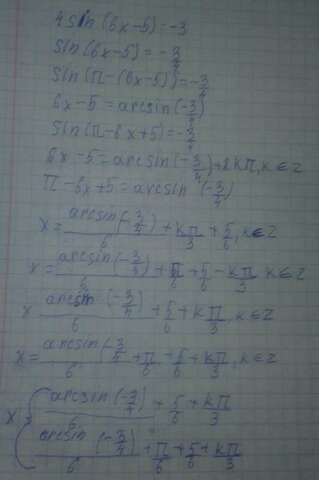 4 sin (6x-5) = -3
sin (6x-5) = -3/4
sin (π-(6x-5)) = -3/4
6x-5 = arcsin (-3/4)
sin (π-6x+5) = -3/4
6x-5 = arcsin (-3/4) + 2kπ, k ∈ Z
π-6x+5 = arcsin (-3/4)
x = arcsin(-3/4)/6 + kπ/3 + 5/6, k ∈ Z
x = arcsin(-3/4)/6 + π/6 + 5/6 - kπ/3 k ∈ Z
x arcsin (-3/4)/6 + 5/6 + kπ/3, k ∈ Z
x = arcsin(-3/4/6 + π/6 + 5/6 + kπ/3, k ∈ Z
x = { arcsin(-3/4)/6 + 5/6 + kπ/3
arcsin (-3/4)/6 + π/6 + 5/6 + kπ/3